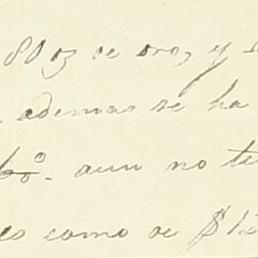 803 de oro, y
ademas se ha
aun no te
es como de $12